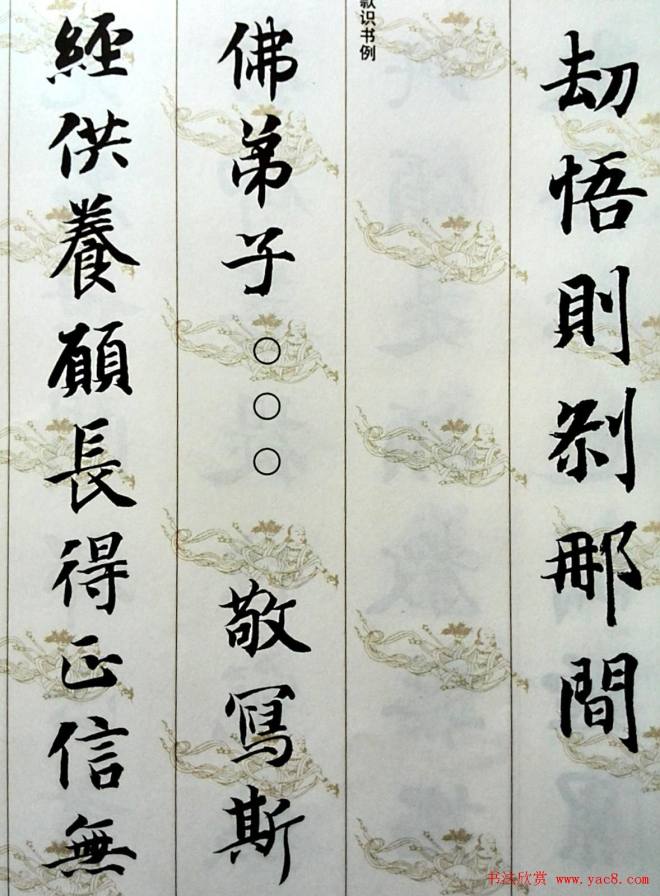 劫悟則刹那間
款识书例
佛弟子〇〇〇敬寫斯
經供養願長得正信無
书法欣赏 www.yac8.com